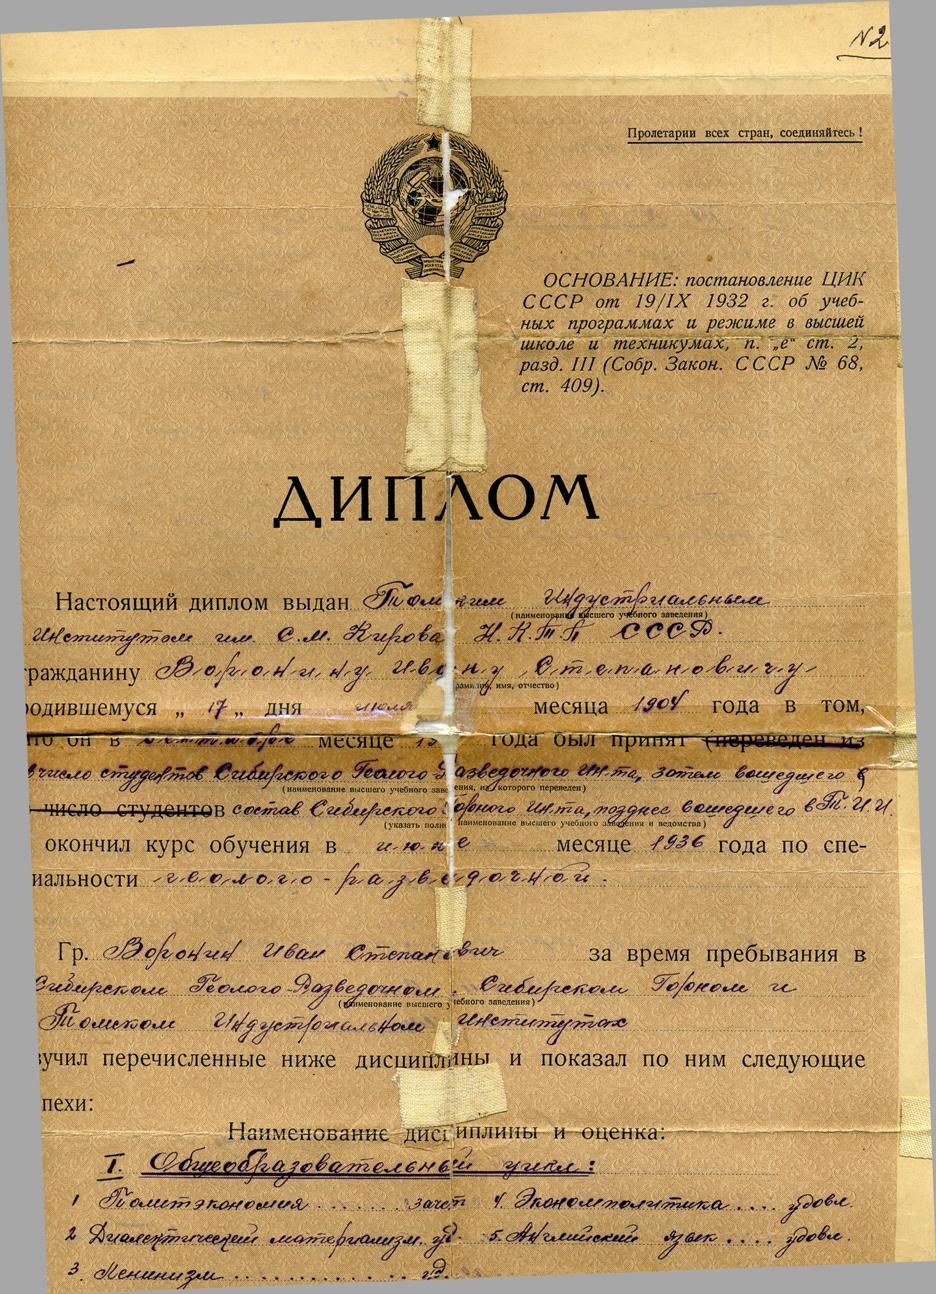 №2
Пролетарии всех стран, соединяйтесь!
ОСНОВАНИЕ: постановление ЦИК
СССР от 19/IX 1932 г. об учеб-
ных программах и режиме в высшей
школе и техникумах, п. „е“ ст. 2,
разд. III (Собр. Закон. СССР № 68,
ст. 409).
ДИПЛОМ
Настоящий диплом выдан Томским Индустриальным
(наименование высшего учебного заведения)
Институтом им. С.М. Кирова Н.К.Т.П СССР.
ражданину Воронину Ивану Степановичу
(фамилия, имя, отчество)
родившемуся „ 17 „ дня июля месяца 1904 года в том,
что он в сентябре месяце года был принят (переведен из
в число студентов Сибирского Геолого-Разведочного Ин-та, затем вошедшего в
(наименование высшего учебного заведения, из которого переведен)
число студентов состав Сибирского Горного Ин-та, позднее вошедшего в Т.И.И.
(указать полное наименование высшего учебного заведения и ведомства)
окончил курс обучения в июне месяце 1936 года по спе-
иальности геолого-разведочной.
Гр. Воронин Иван Степанович за время пребывания в
Сибирском Геолого-Разведочном, Сибирском Горном и
(наименование высшего учебного заведения)
Томском Индустриальном Институтах
зучил перечисленные ниже дисциплины и показал по ним следующие
пехи:
Наименование дисциплины и оценка:
I. Общеобразовательный цикл:
1 Политэкономия ....... зачет 4. Экономполитика .... удовл.
2 Диалектический материализм. уд. 5. Английский язык .... удовл.
3. Ленинизм ............ уд.